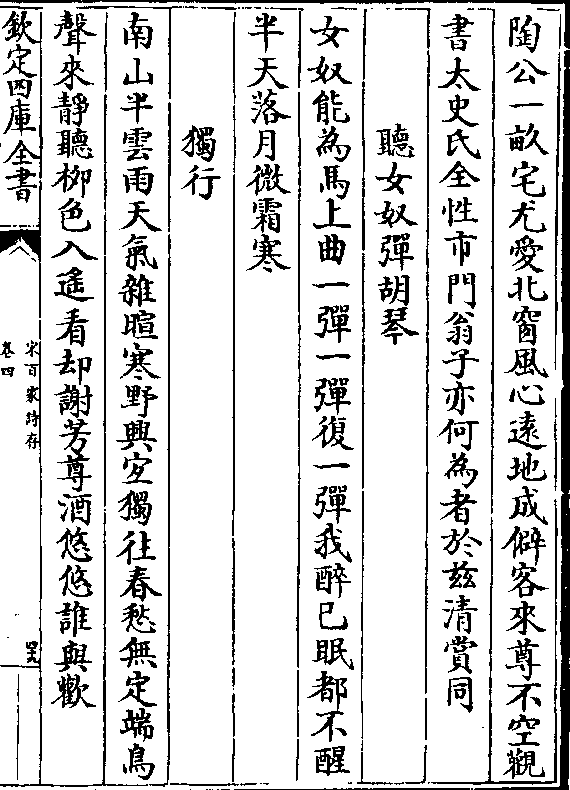 陶公一畝宅尤愛北窗風心遠地成僻客來尊不空觀
書太史氏全性市門翁子亦何為者於兹清賞同
聽女奴彈胡琴
女奴能為馬上曲一彈一彈復一彈我醉已眠都不醒
半天落月微霜寒
獨行
南山半雲雨天氣雜暄寒野興宜獨往春愁無定端鳥
聲來靜聽栁色入遙看却謝芳尊酒悠悠誰與歡
欽定四庫全書
宋百家詩存
卷四
四十九